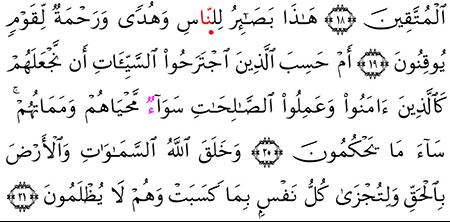 اَلْمُتَّقِينَ ۝١٨ هَٰذَا بَصَٰٓئِرُ لِلنَّاسِ وَهُدًى وَرَحْمَةٌ لِّقَوْمٍ
يُوقِنُونَ ۝١٩ أَمْ حَسِبَ ٱلَّذِينَ ٱجْتَرَحُواْ ٱلسَّيِّـَٔاتِ أَن نَّجْعَلَهُمْ
كَٱلَّذِينَ ءَامَنُواْ وَعَمِلُواْ ٱلصَّٰلِحَٰتِ سَوَآءٌ مَّحْيَاهُمْ وَمَمَاتُهُمْۚ
سَآءَ مَا يَحْكُمُونَ ۝٢٠ وَخَلَقَ ٱللَّهُ ٱلسَّمَٰوَٰتِ وَٱلْأَرْضَ
بِٱلْحَقِّ وَلِتُجْزَىٰ كُلُّ نَفْسٍۭ بِمَا كَسَبَتْ وَهُمْ لَا يُظْلَمُونَ ۝٢١